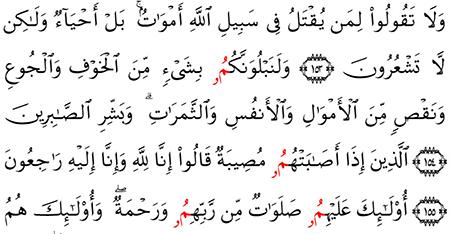 وَلَا تَقُولُواْ لِمَن يُقْتَلُ فِى سَبِيلِ ٱللَّهِ أَمْوَٰتُۢ ۚ بَلْ أَحْيَآءٌ وَلَٰكِن
لَّا تَشْعُرُونَ ١٥٣ وَلَنَبْلُوَنَّكُمُۥ بِشَىْءٍ مِّنَ ٱلْخَوْفِ وَٱلْجُوعِ
وَنَقْصٍ مِّنَ ٱلْأَمْوَٰلِ وَٱلْأَنفُسِ وَٱلثَّمَرَٰتِ ۗ وَبَشِّرِ ٱلصَّٰبِرِينَ
١٥٤ ٱلَّذِينَ إِذَا أَصَٰبَتْهُمُۥ مُصِيبَةٌ قَالُواْ إِنَّا لِلَّهِ وَإِنَّا إِلَيْهِ رَٰجِعُونَ
١٥٥ أُوْلَٰٓئِكَ عَلَيْهِمُۥ صَلَوَٰتٌ مِّن رَّبِّهِمُۥ وَرَحْمَةٌ ۖ وَأُوْلَٰٓئِكَ هُمُ